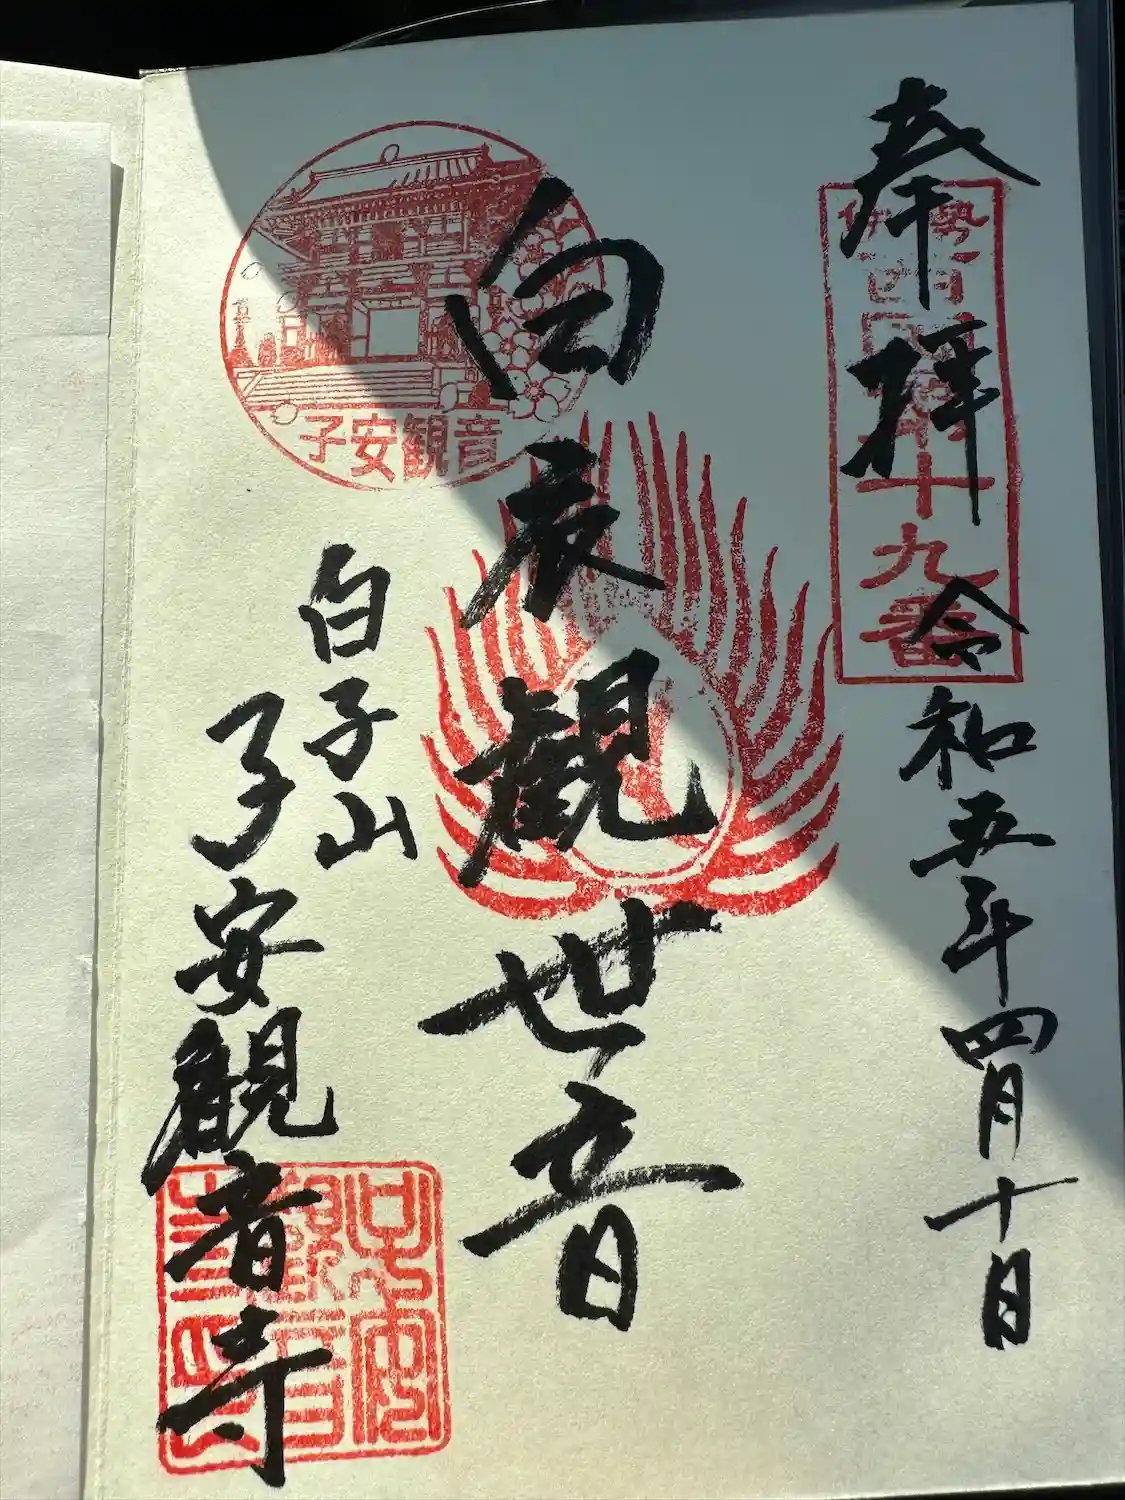 奉拝
伊勢西国第十九番
令和五年四月十日
白衣観世音
子安観音
白子山
子安観音寺
子安
観音
寺印